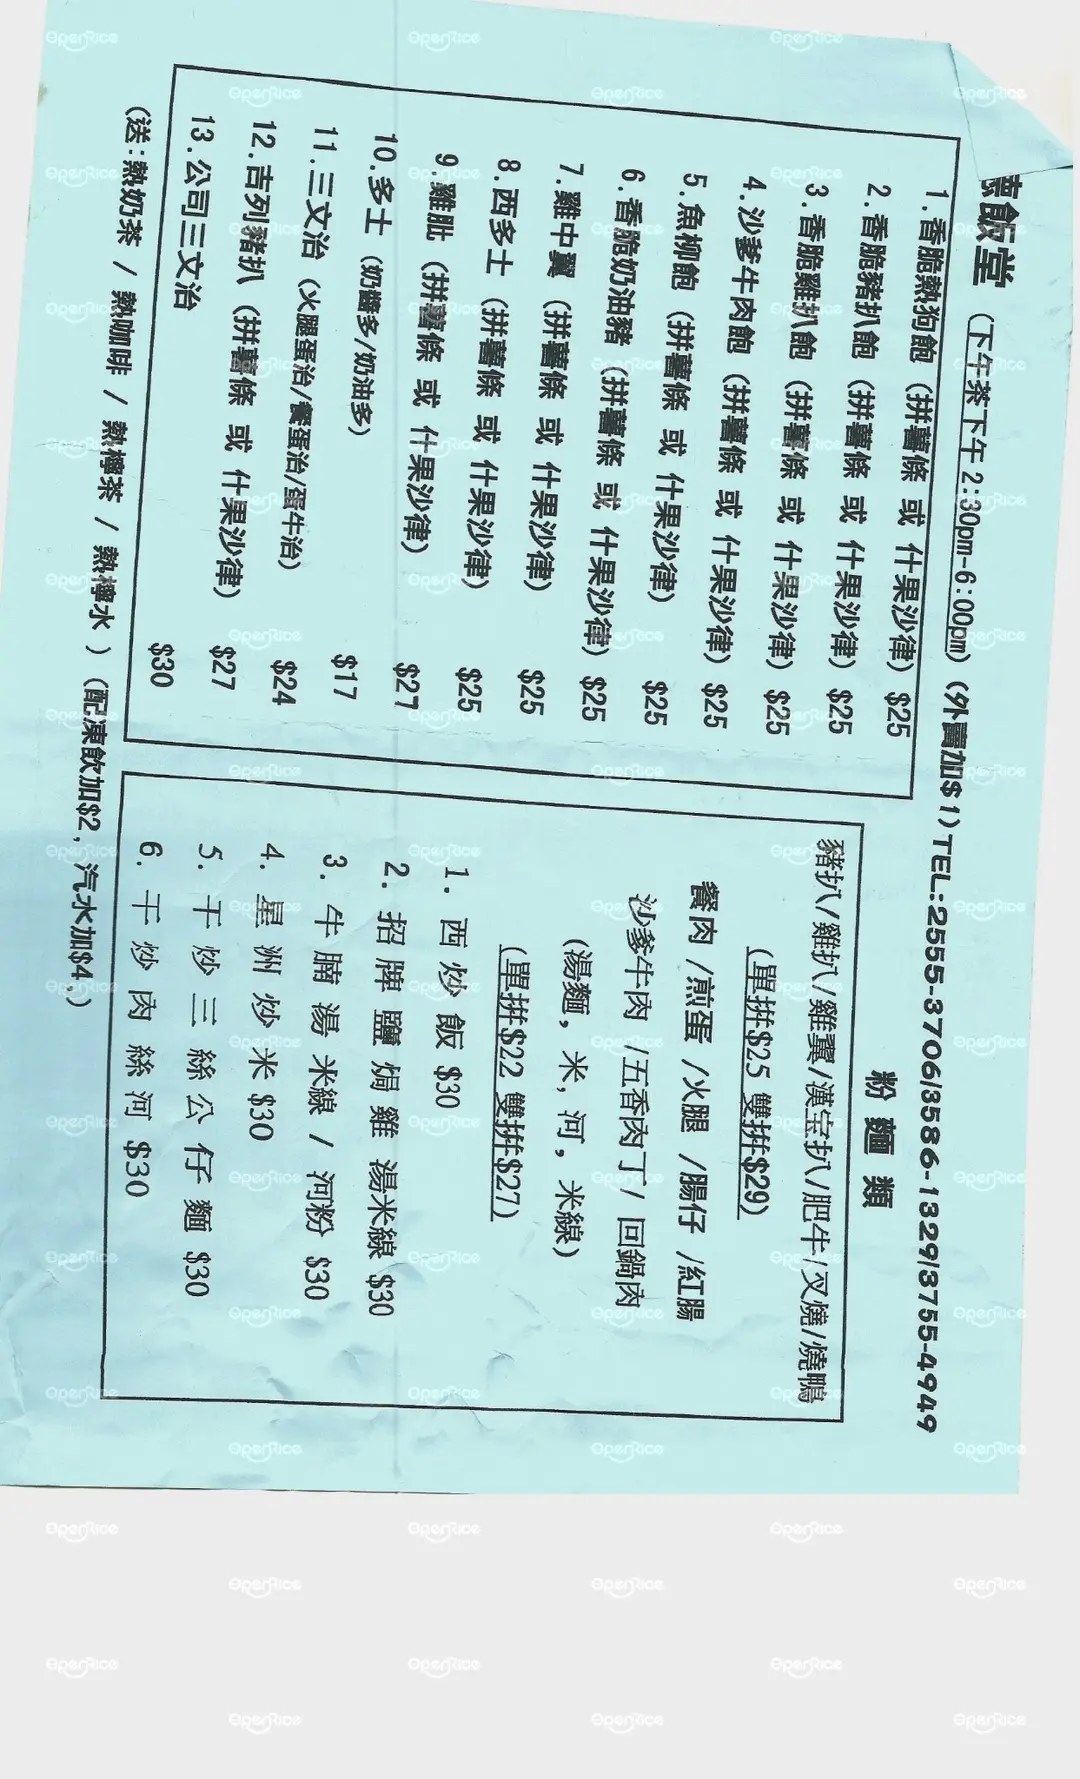 飯堂 (下午茶下午2:30pm-6:00pm) (外賣加$1) TEL:2555-3706/3586-1329/3755-4949
1.香脆熱狗飽 (拼薯條 或 什果沙律) $25
2.香脆豬扒飽 (拼薯條 或 什果沙律) $25
3.香脆雞扒飽 (拼薯條 或 什果沙律) $25
4.沙爹牛肉飽 (拼薯條 或 什果沙律) $25
5.魚柳飽 (拼薯條 或 什果沙律) $25
6.香脆奶油豬 (拼薯條 或 什果沙律) $25
7.雞中翼 (拼薯條 或 什果沙律) $25
8.西多士 (拼薯條 或 什果沙律) $25
9.雞肶 (拼薯條 或 什果沙律) $27
10.多士 (奶醬多/奶油多) $17
11.三文治 (火腿蛋治/餐蛋治/蛋牛治) $24
12.吉列豬扒 (拼薯條 或 什果沙律) $27
13.公司三文治 $30
(送:熱奶茶 / 熱咖啡 / 熱檸茶 / 熱檸水 ) (配凍飲加$2, 汽水加$4,)
粉 麵 類
豬扒/雞扒/雞翼/漢宝扒/肥牛/叉燒/燒鴨
(單拼$25 雙拼$29)
餐肉 /煎蛋 /火腿 /腸仔 /紅腸
沙爹牛肉 /五香肉丁/ 回鍋肉
(湯麵, 米, 河, 米線)
(單拼$22 雙拼$27)
1. 西炒飯 $30
2. 招牌鹽焗雞 湯米線 $30
3. 牛腩湯 米線 / 河粉 $30
4. 星洲炒米 $30
5. 干炒三絲公仔麵 $30
6. 干炒肉絲河 $30
OpenRice